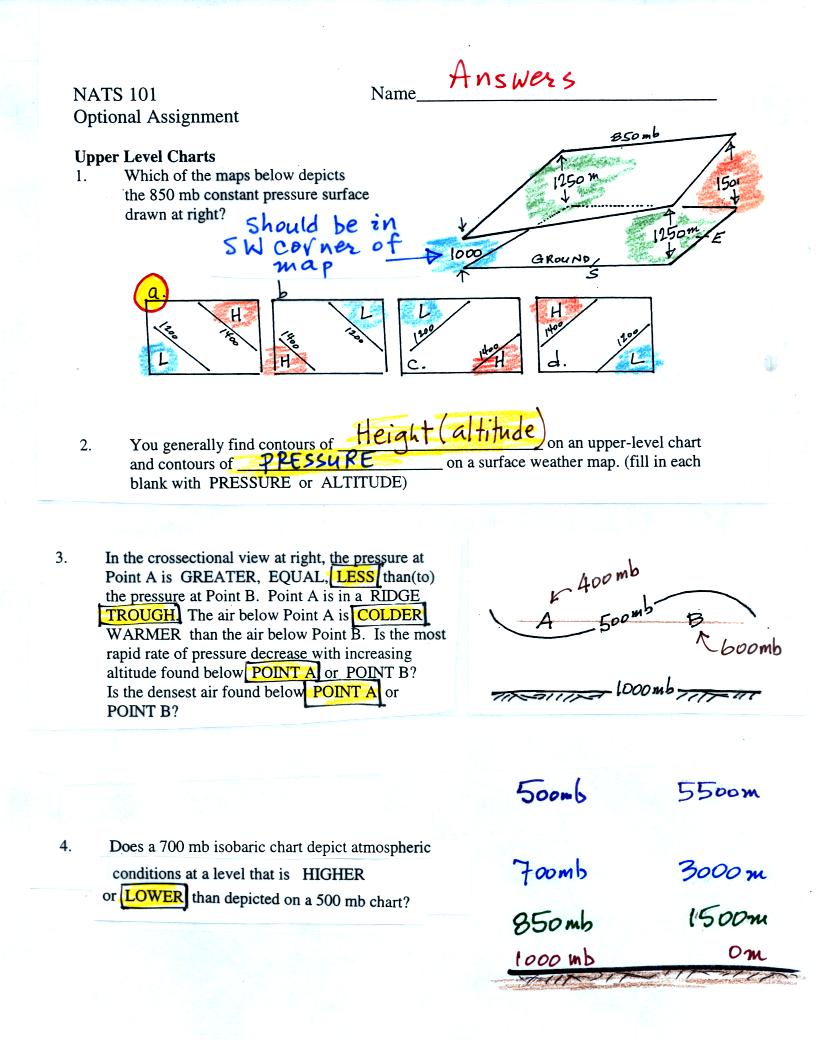 NATS 101
Name Answers
Optional Assignment
Upper Level Charts
1. Which of the maps below depicts
the 850 mb constant pressure surface
drawn at right?
should be in
SW corner of
map
850mb
1250m
150
1250m
E
1000
GROUND
S
a.
H
1200
1400
L
b
L
1400
1200
H
L
1200
1400
c.
H
H
1400
1200
d.
L
2. You generally find contours of Height (altitude) on an upper-level chart
and contours of PRESSURE on a surface weather map. (fill in each
blank with PRESSURE or ALTITUDE)
3. In the crossectional view at right, the pressure at
Point A is GREATER, EQUAL, LESS than(to)
the pressure at Point B. Point A is in a RIDGE
TROUGH. The air below Point A is COLDER
WARMER than the air below Point B. Is the most
rapid rate of pressure decrease with increasing
altitude found below POINT A or POINT B?
Is the densest air found below POINT A or
POINT B?
400mb
A
500mb
B
600mb
1000mb
500mb 5500m
4. Does a 700 mb isobaric chart depict atmospheric
conditions at a level that is HIGHER
or LOWER than depicted on a 500 mb chart?
700mb 3000m
850mb 1500m
1000 mb 0m